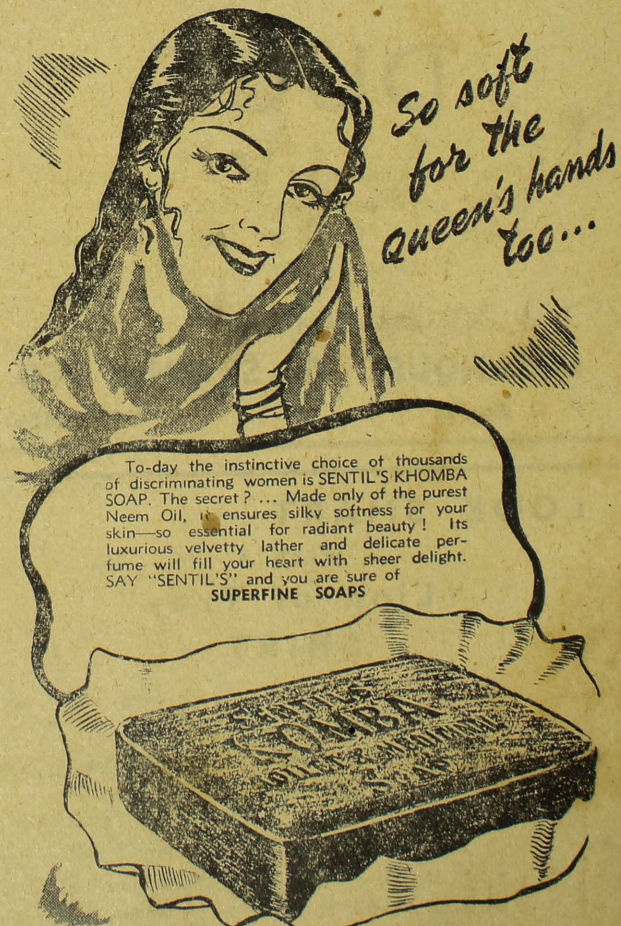 So soft
for the
Queen's hands
too...
To-day the instinctive choice of thousands
of discriminating women is SENTIL'S KHOMBA
SOAP. The secret ? ... Made only of the purest
Neem Oil, it ensures silky softness for your
skin—so essential for radiant beauty ! Its
luxurious velvetty lather and delicate per-
fume will fill your heart with sheer delight.
SAY "SENTIL'S" and you are sure of
SUPERFINE SOAPS
SENTIL'S
KOMBA
TOILET & MEDICINAL
SOAP